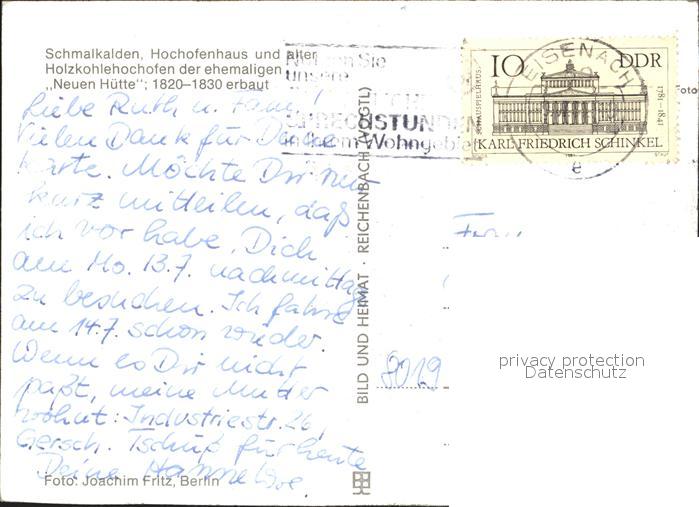 Schmalkalden, Hochofenhaus und alter
Holzkohlehochofen der ehemaligen
„Neuen Hütte“; 1820–1830 erbaut
Liebe Ruth u. Fam.!
Vielen Dank für Deine
Karte. Möchte Dir nur
kurz mitteilen, daß
ich vor habe, Dich
am Mo. 13.7. nachmittag
zu besuchen. Ich fahre
am 14.7. schon wieder.
Wenn es Dir nicht
paßt, meine Mutter
wohnt: Industriestr. 26,
Gersch. Tschüß für heute
Deine Hannelore.
Foto: Joachim Fritz, Berlin
BILD UND HEIMAT · REICHENBACH (VOGTL)
Nutzen Sie
unsere
SPRECHSTUNDEN
in Ihrem Wohngebiet
EISENACH
e
10 DDR
SCHAUSPIELHAUS
1781–1841
KARL FRIEDRICH SCHINKEL
Foto
Frau
8019
privacy protection
Datenschutz